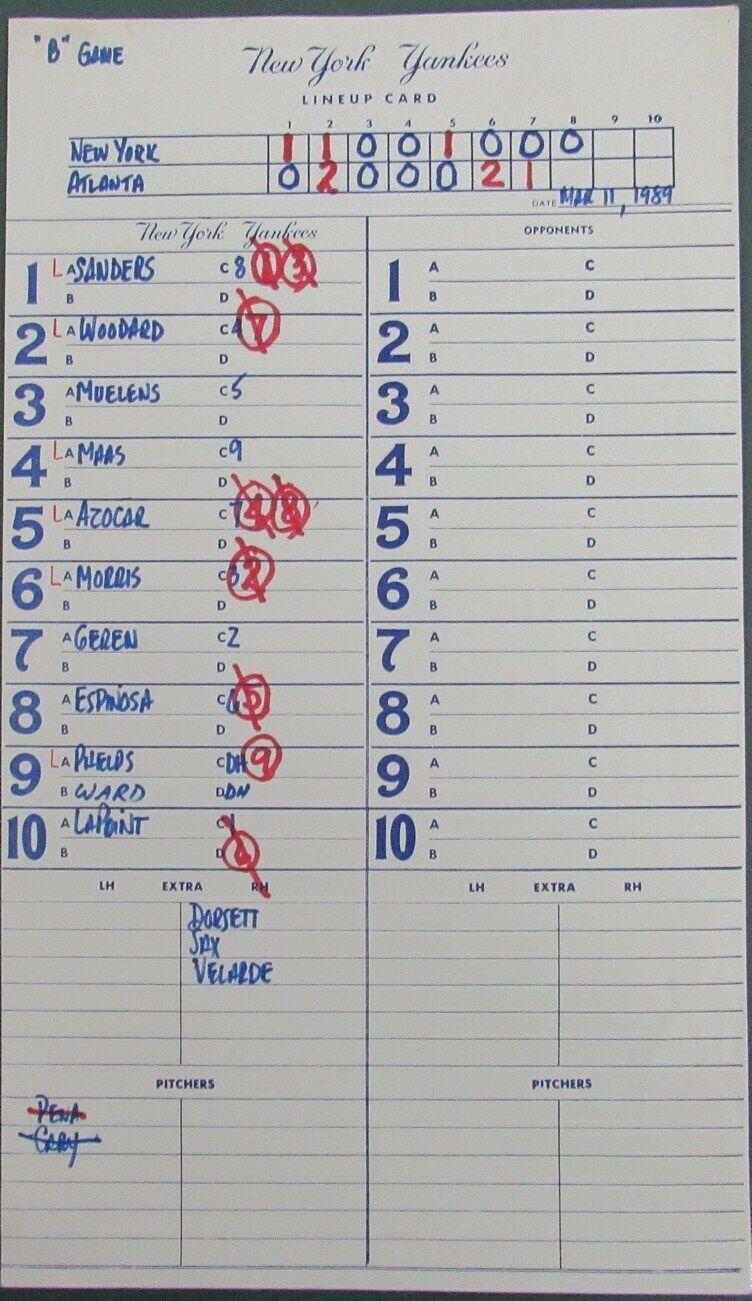 "B" GAME
New York Yankees
LINEUP CARD
1 2 3 4 5 6 7 8 9 10
NEW YORK 1 1 0 0 1 0 0 0
ATLANTA 0 2 0 0 0 2 1
DATE MAR 11, 1989
New York Yankees OPPONENTS
1 L A SANDERS C 8 1 3 1 A C
B D B D
2 L A WOODARD C 4 7 2 A C
B D B D
3 A MUELENS C 5 3 A C
B D B D
4 L A MAAS C 9 4 A C
B D B D
5 L A AZOCAR C 7 4 8 5 A C
B D B D
6 L A MORRIS C 3 2 6 A C
B D B D
7 A GEREN C 2 7 A C
B D B D
8 A ESPINOSA C 6 5 8 A C
B D B D
9 L A PHELPS C DH 9 9 A C
B WARD D DH B D
10 A LAPOINT C 1 10 A C
B D 6 B D
LH EXTRA RH LH EXTRA RH
DORSETT
SAX
VELARDE
PITCHERS PITCHERS
PENA
CARY